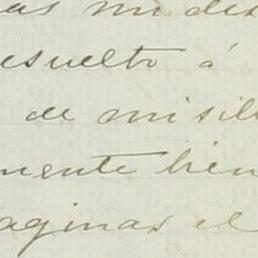 as mi des
esuelto á
de mi sil
mente bien
aginar el